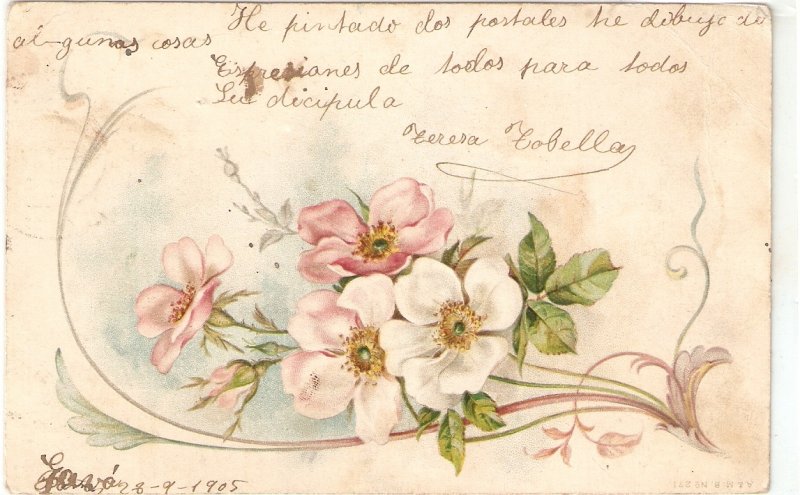 He pintado dos postales he dibujado
algunas cosas
Expreciones de todos para todos
Su dicipula
Teresa Tobella
28-9-1905
A&M.B. No 271